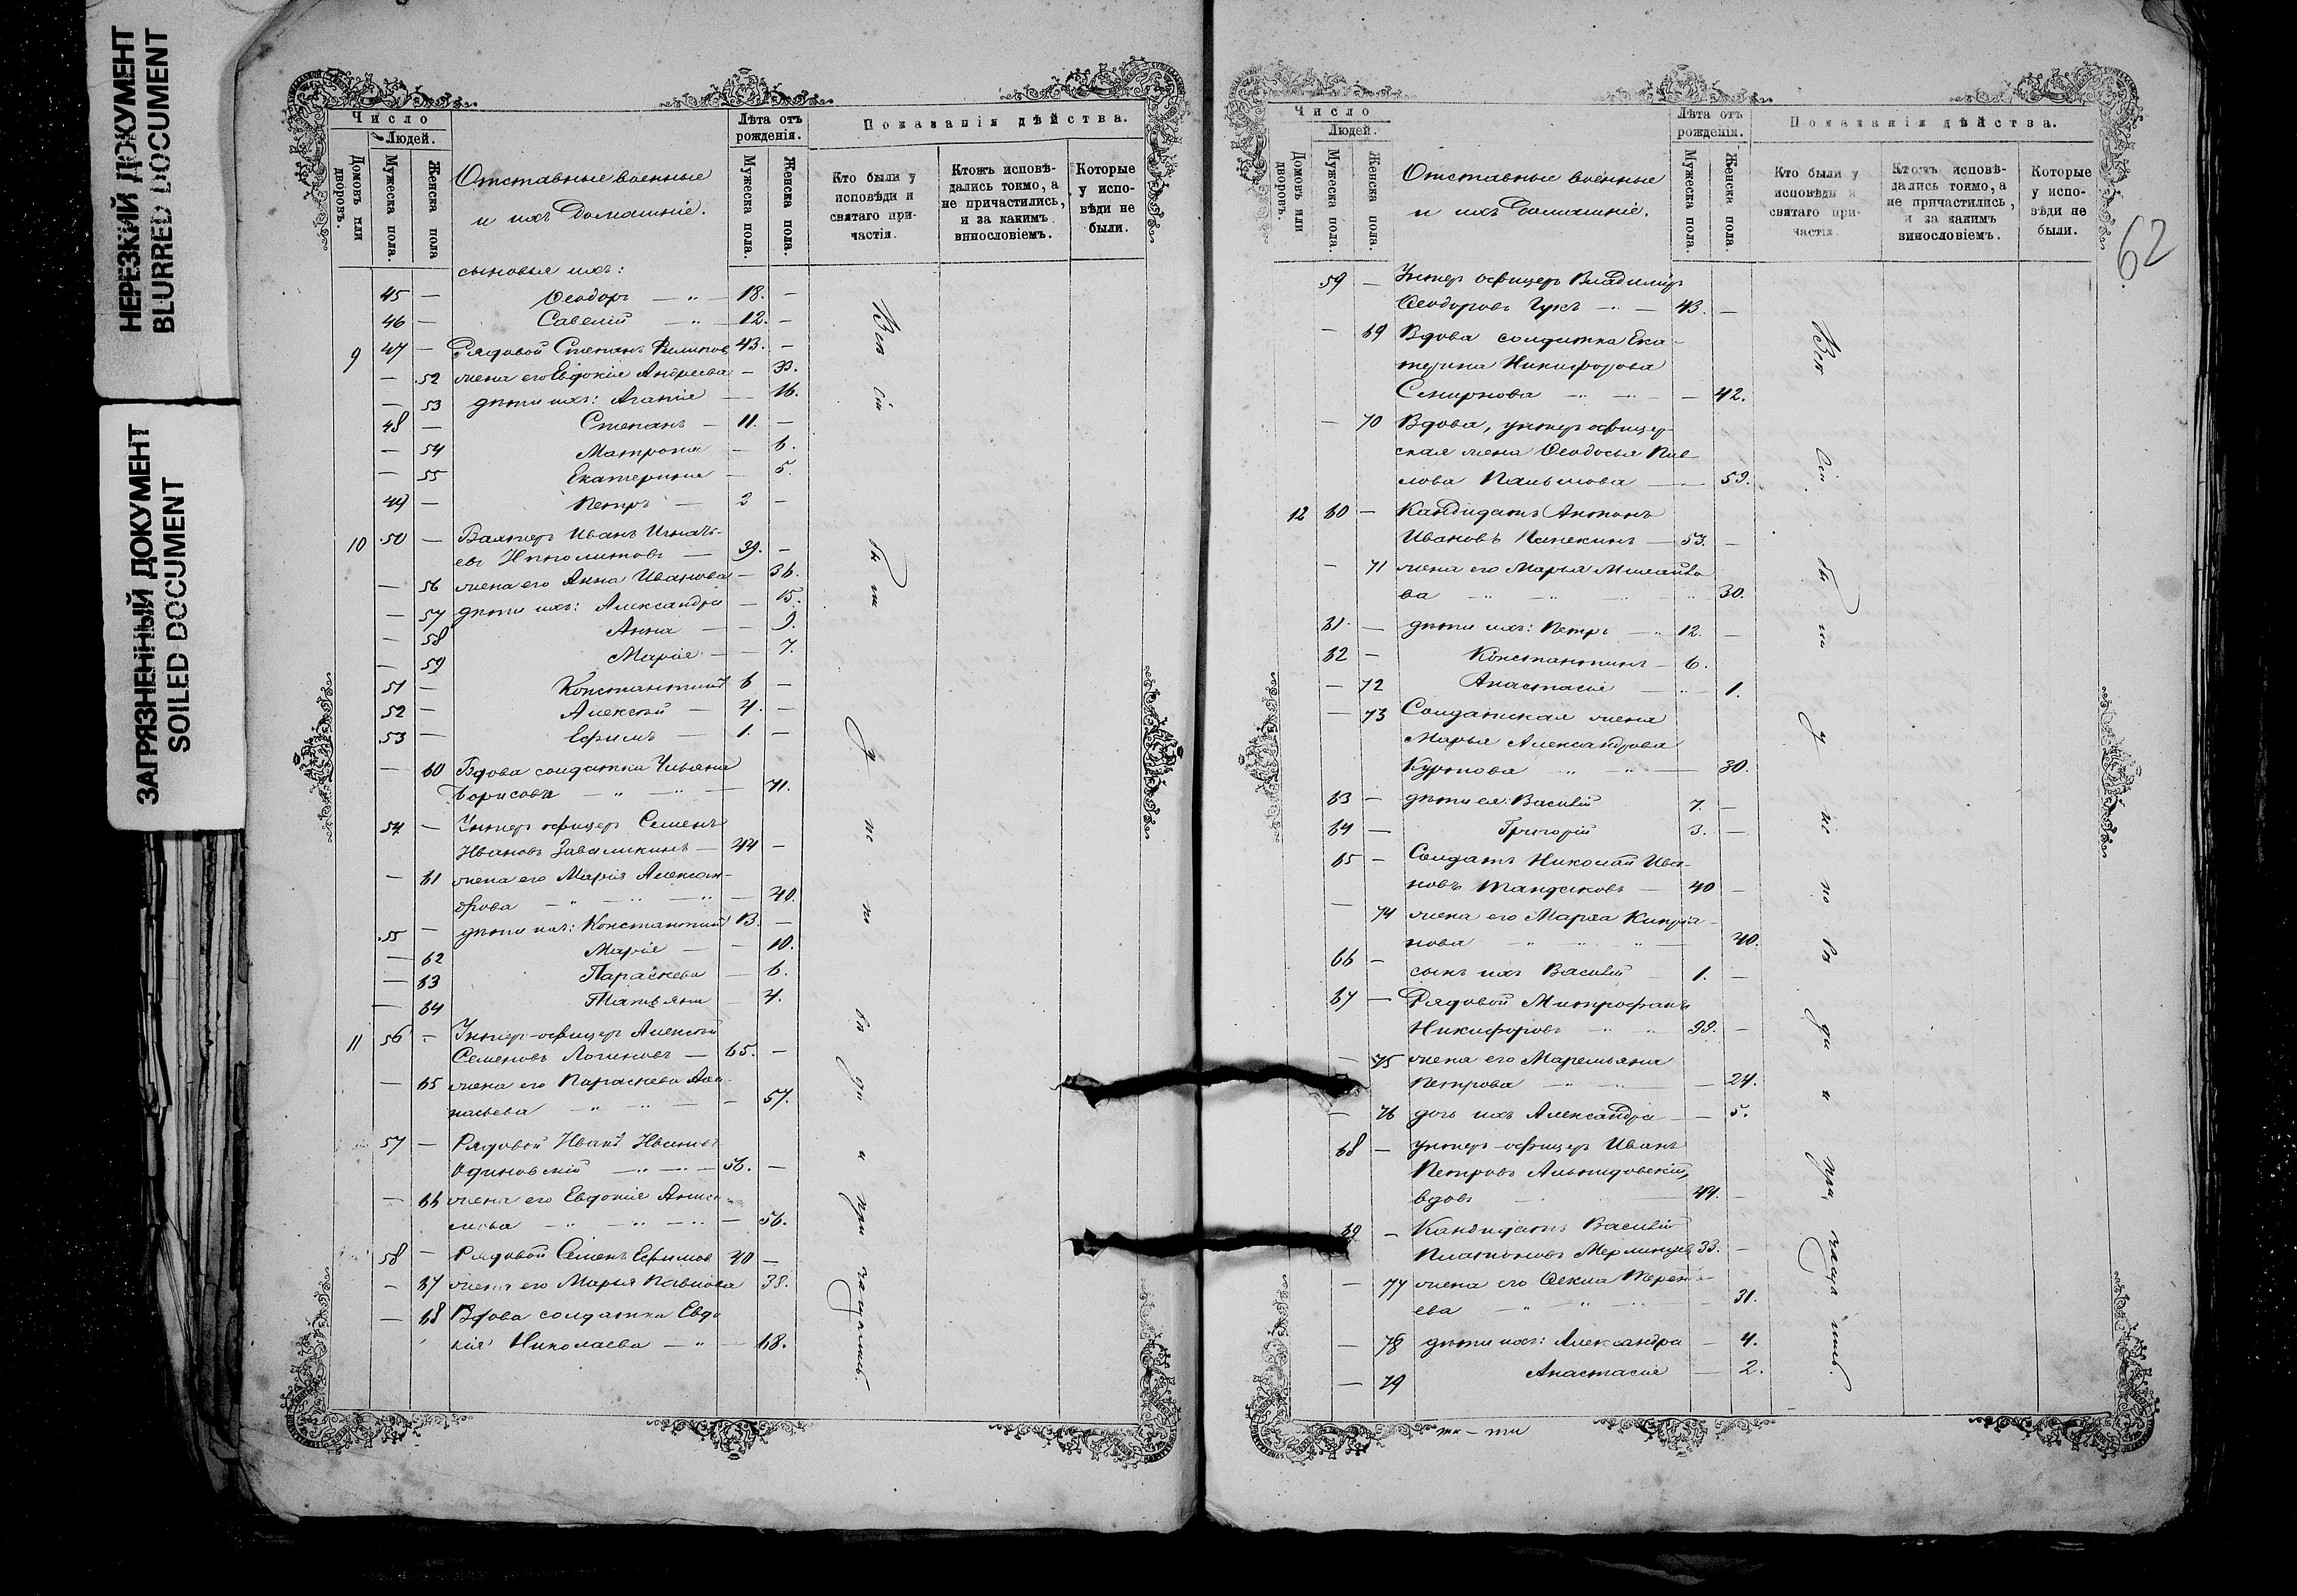 НЕРЕЗКИЙ ДОКУМЕНТ
BLURRED DOCUMENT
ЗАГРЯЗНЕННЫЙ ДОКУМЕНТ
SOILED DOCUMENT
Число
Людей.
Домовъ или дворовъ.
Мужеска пола.
Женска пола
Отставные военные
и ихъ домашніе.
Лѣта отъ рожденія.
Мужеска пола.
Женска пола.
Показанія дѣйства.
Кто были у исповѣди и святаго причастія.
Ктожъ исповѣдались токмо, а не причастились, и за какимъ винословіемъ.
Которые у исповѣди не были.
сыновья ихъ:
45 — Ѳеодоръ — " — 18. —
46 — Савелій — " — 12. —
9 47 — Рядовой Степанъ Филиповъ 43. —
— 52 жена его Евдокія Андреева — 33.
— 53 дѣти ихъ: Агапія — 16.
48 — Степанъ — 11. —
— 54 Матрона — 6.
— 55 Екатерина — 5.
49 — Петръ — 2 —
10 50 — Вахтеръ Иванъ Игнать-
евъ Ипполитовъ — 39. —
— 56 жена его Анна Иванова — 36.
— 57 дѣти ихъ: Александра — 15.
— 58 Анна — 9.
— 59 Марія — 7.
51 — Константинъ 6 —
52 — Алексѣй — 4. —
53 — Ефимъ — 1. —
— 60 Вдова солдатка Ульяна
Борисова — " — " — 71.
54 — Унтеръ офицеръ Семенъ
Ивановъ Завалихинъ — 44 —
— 61 жена его Марія Алексан-
дрова — " — " — " — 40.
55 — дѣти ихъ: Константинъ 13. —
— 62 Марія — 10.
— 63 Параскева — 6.
— 64 Татьяна — 4.
11 56 — Унтеръ-офицеръ Алексѣй
Семеновъ Логиновъ — 65. —
— 65 жена его Параскева Аѳа-
насьева — " — " — 57.
57 — Рядовой Иванъ Ивановъ
Одиновскій — " — " — 56. —
— 66 жена его Евдокія Аниси-
мова — " — " — " — 56.
58 — Рядовой Семенъ Ефимовъ 40 —
— 67 жена его Марья Павлова 38.
— 68 Вдова солдатка Евдо
кія Николаева — " — 68.
Всѣ сіи были у исповѣди и причастія
Число
Людей.
Домовъ или дворовъ.
Мужеска пола.
Женска пола.
Отставные военные
и ихъ домашніе.
Лѣта отъ рожденія.
Мужеска пола.
Женска пола.
Показанія дѣйства.
Кто были у исповѣди и святаго причастія.
Ктожъ исповѣдались токмо, а не причастились, и за какимъ винословіемъ.
Которые у исповѣди не были.
62
59 — Унтеръ офицеръ Владиміръ
Ѳеодоровъ Чукъ — " — 43. —
— 69 Вдова солдатка Ека-
терина Никифорова
Смирнова — " — " — 42.
— 70 Вдова, унтеръ офицер-
ская жена Ѳеодосья Пав-
лова Пальмова — 59.
12 60 — Кандидатъ Антонъ
Ивановъ — 53. —
— 71 жена его Марья Михайло
ва — " — " — " 30.
61 — дѣти ихъ: Петръ — " 12. —
62 — Константинъ — 6.
— 72 Анастасія — " — 1.
— 73 Солдатская жена
Марья Александрова
— " — " — 30.
63 — дѣти ея: Василій 7. —
64 — Григорій 3. —
65 — Солдатъ Николай Ива-
новъ — 40 —
— 74 жена его Марѳа Кипріа-
нова — " — " — " — 40.
66 — сынъ ихъ Василій 1. —
67 — Рядовой Митрофанъ
Никифоровъ — " — " 29. —
— 75 жена его Маремьяна
Петрова — " — " — 24.
— 76 дочь ихъ Александра — 5.
68 — унтеръ-офицеръ Иванъ
Петровъ
вдовъ — 44. —
69 — Кандидатъ Василій
Платоновъ 33. —
— 77 жена его Ѳекла Терен-
ева — " — " — " — 31.
— 78 дѣти ихъ: Александра — 4.
— 79 Анастасія — 2.
Всѣ сіи были у исповѣди и причастія.